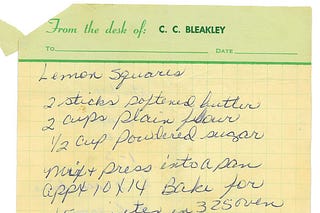 From the desk of: C. C. BLEAKLEY
TO DATE
Lemon Squares
2 sticks softened butter
2 cups plain flour
1/2 cup powdered sugar
Mix + press into a pan
appx 10 X 14 Bake for
15 minutes in 325 oven